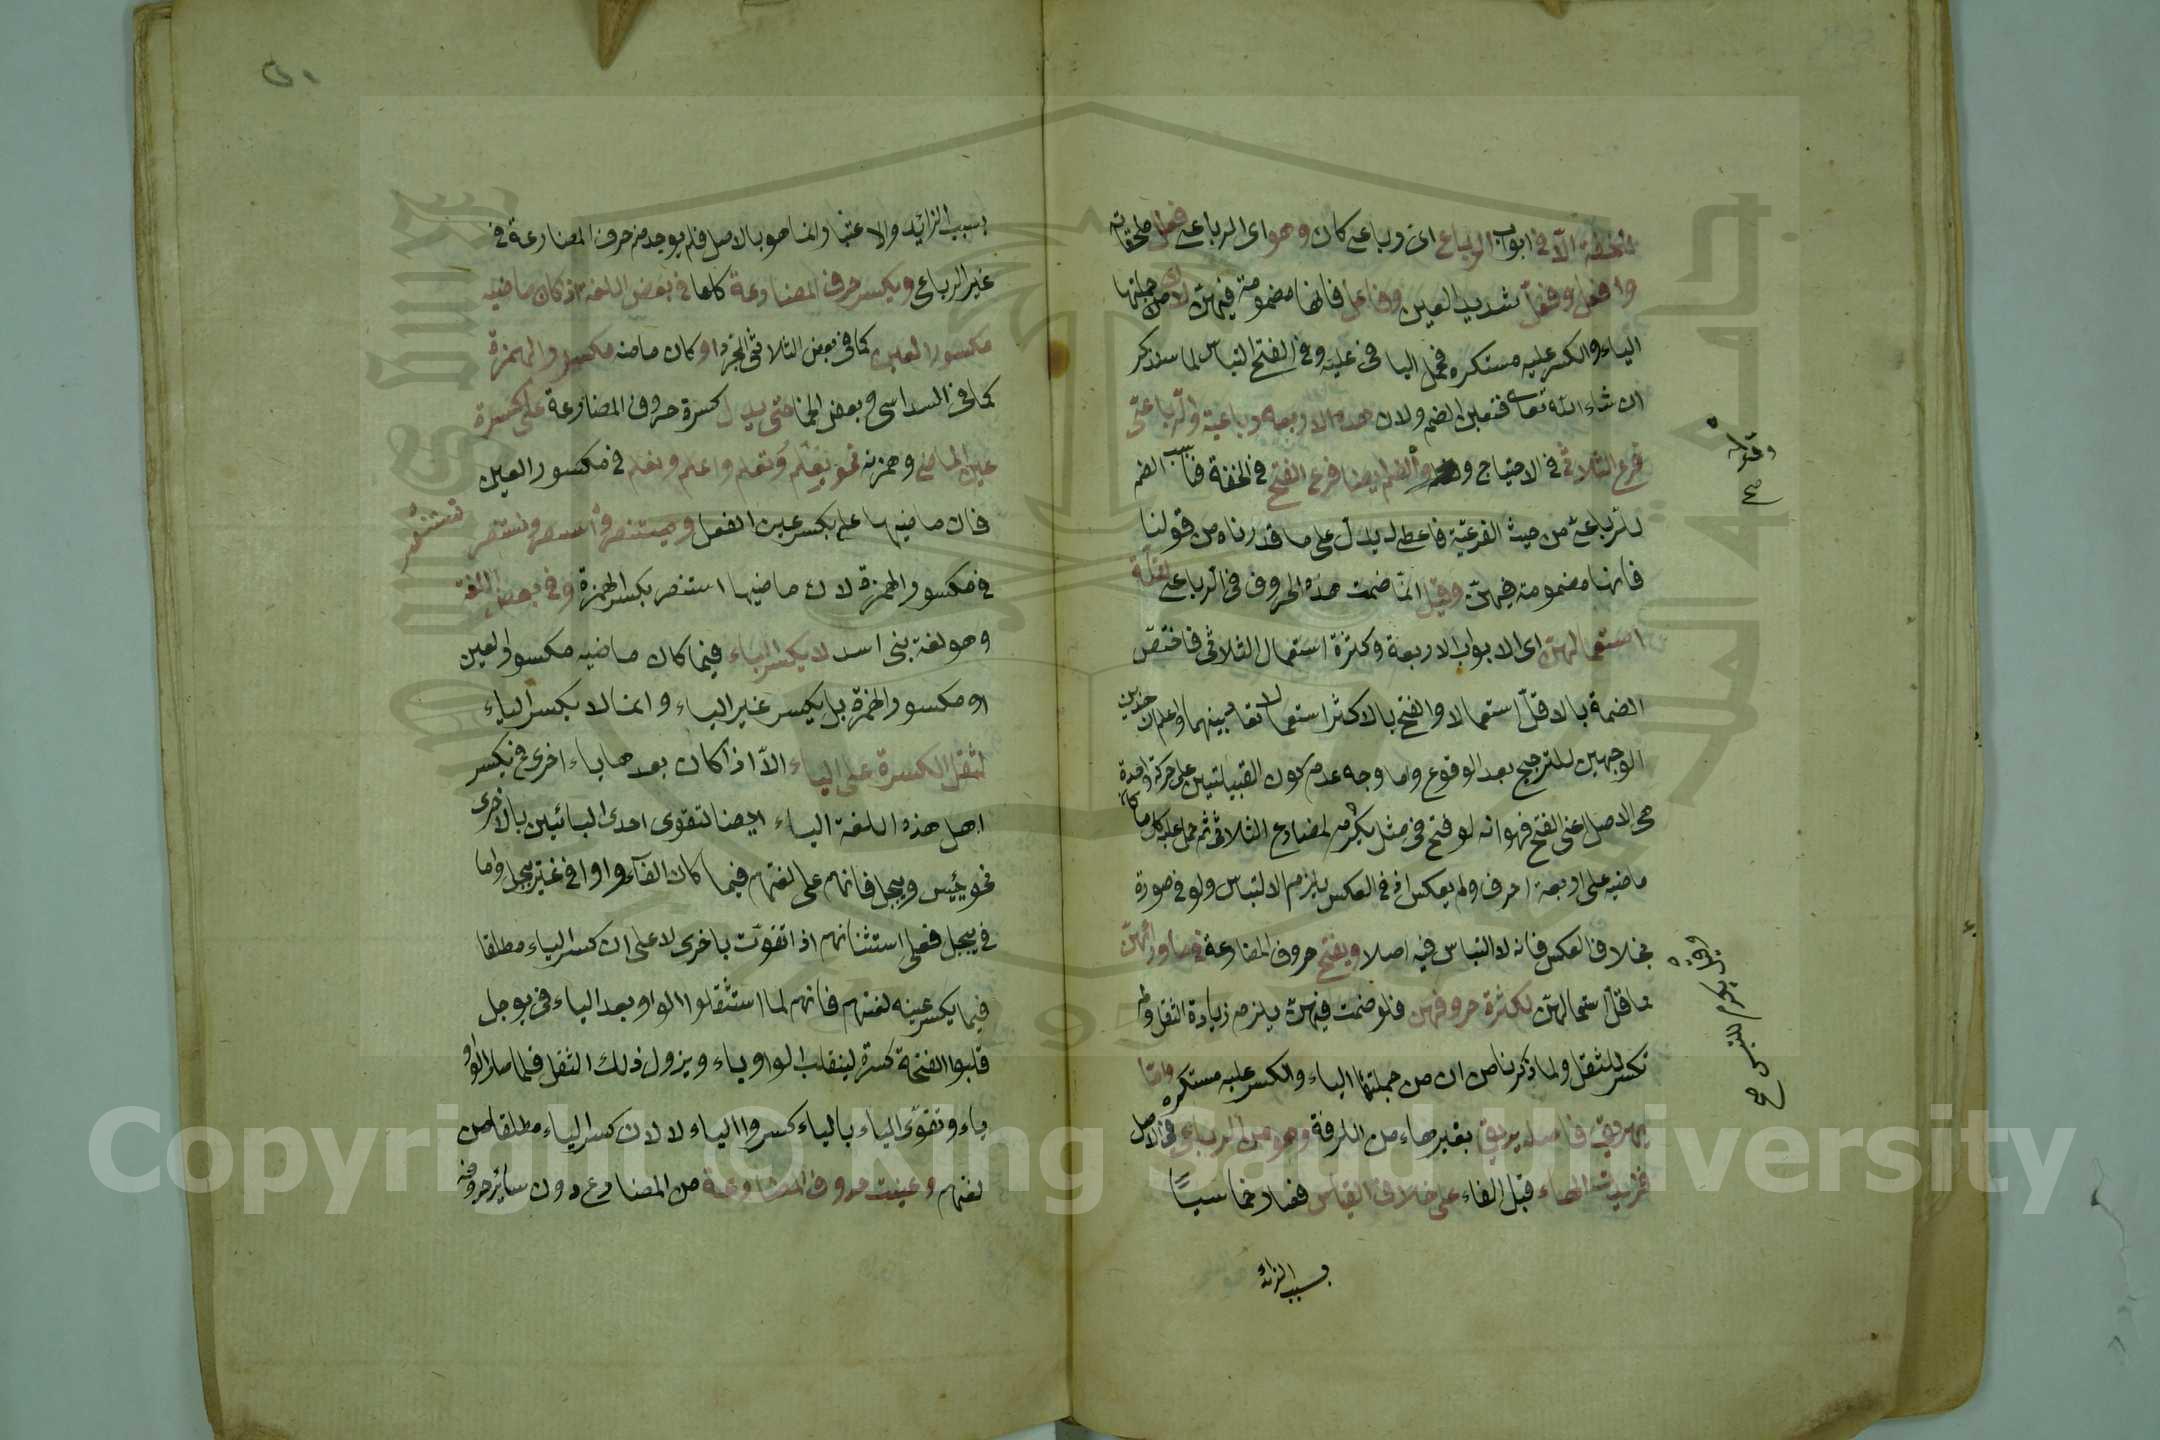 الا في ابواب الرباعي اي رباعي كان وهو اي الرباعي فعلل وملحقاته
وافعل وفعل بتشديد العين وفاعل فانها مضمومة فيهن لان من جملتها
الياء والكسر عليه مستكره فحمل الباقي عليه وفي الفتح التباس لما سنذكر
ان شاء الله تعالى فتعين الضم ولان هذه الاربعة رباعية والرباعي
فرع الثلاثي في الاحتياج والضم ايضا فرع الفتح في الخفة فناسب الضم
للرباعي من حيث الفرعية فاعطي له يدل على ما قدرناه من قولنا
فانها مضمومة فيهن وقيل انما ضمت هذه الحروف في الرباعي لقلة
استعمالهن اي الابواب الاربعة وكثرة استعمال الثلاثي فاختص
الضمة بالاقل استعمالا والفتح بالاكثر استعمالا تعادلا بينهما واعلم ان هذين
الوجهين للترجيح بعد الوقوع واما وجه عدم كون القبيلتين على حركة واحدة
هي الاصل اعني الفتح فهو انه لو فتح في مثل يكرم لمضارع الثلاثي ثم حمل عليه كل ما كان
ماضيه على اربعة احرف ولم يعكس اذ في العكس يلزم الالتباس ولو في صورة
بخلاف العكس فانه لا التباس فيه اصلا ويفتح حروف المضارعة فيما ورائهن
مما قل استعمالهن لكثرة حروفهن فلو ضمت فيهن يلزم زيادة الثقل ولم
تكسر للثقل ولما ذكرنا من ان من جملتها الياء والكسر عليه مستكره واما
يهريق فاصله يريق بغير هاء من اراقة وهو من الرباعي في الاصل
فزيدت الهاء قبل الفاء على خلاف القياس فصار خماسيا
بسبب الزائد
وقوله
صح
صح
بسبب الزائد والاعتبار انما هو بالاصل فلم يوجد ضم حرف المضارعة في
غير الرباعي ويكسر حرف المضارعة كلها في بعض اللغة اذ كان ماضيه
مكسور العين كما في بعض الثلاثي المجرد او كان ماضيه مكسور الهمزة
كما في السداسي وبعض الخماسي حتى يدل كسرة حروف المضارعة على كسرة
عين الماضي وهمزته نحو يعلم وتعلم واعلم ونعلم في مكسور العين
فان ماضيها علم بكسر عين الفعل ويستنصر وتستنصر واستنصر ونستنصر
في مكسور الهمزة لان ماضيها استنصر بكسر الهمزة وفي بعض اللغة
وهو لغة بني اسد لا يكسر الياء فيما كان ماضيه مكسور العين
او مكسور الهمزة بل يكسر غير الياء وانما لا يكسر الياء
لثقل الكسرة على الياء الا اذا كان بعدها ياء اخرى فيكسر
اهل هذه اللغة الياء ايضا لتقوى احدى اليائين بالاخرى
نحو ييئس وييجل فانهم على لغتهم فيما كان الفاء واوا في غير ييجل واما
في ييجل فعلى استثنائهم اذا تقوت باخرى لا على ان كسر الياء مطلقا
فيما يكسر عينه لغتهم فانهم لما استثقلوا الواو بعد الياء في يوجل
قلبوا الفتحة كسرة لينقلب الواو ياء ويزول ذلك الثقل فلما صار الواو
ياء وتقوى الياء بالياء كسروا الياء لا لان كسر الياء مطلقا من
لغتهم وعينت حروف المضارعة من المضارع دون سائر حروفه
Copyright © King Saud University